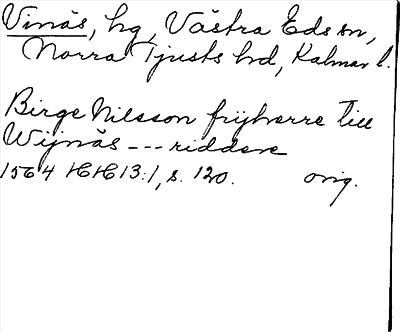 Vinäs, hg, Västra Eds sn,
Norra Tjusts hd, Kalmar l.
Birge Nilsson frijherre till
Wijnäs --- riddare
1564 HH 13:1, s. 120. orig.